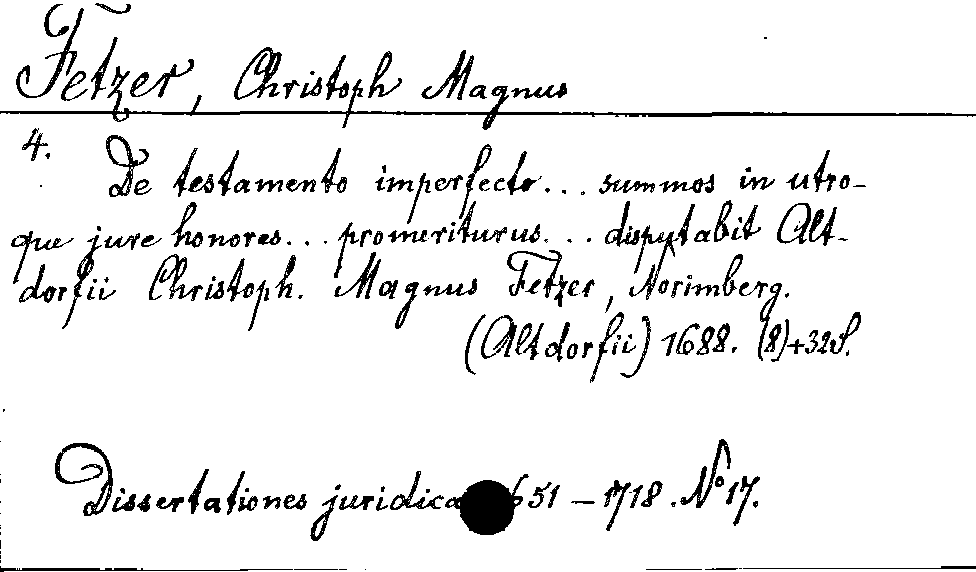 Fetzer, Christoph Magnus
4.
De testamento imperfecto... summos in utro-
que jure honores... promeriturus... disputabit Alt-
dorfii Christoph. Magnus Fetzer, Norimberg.
(Altdorfii) 1688. (8)+32S.
Dissertationes juridica 1651 – 1718. Nº 17.